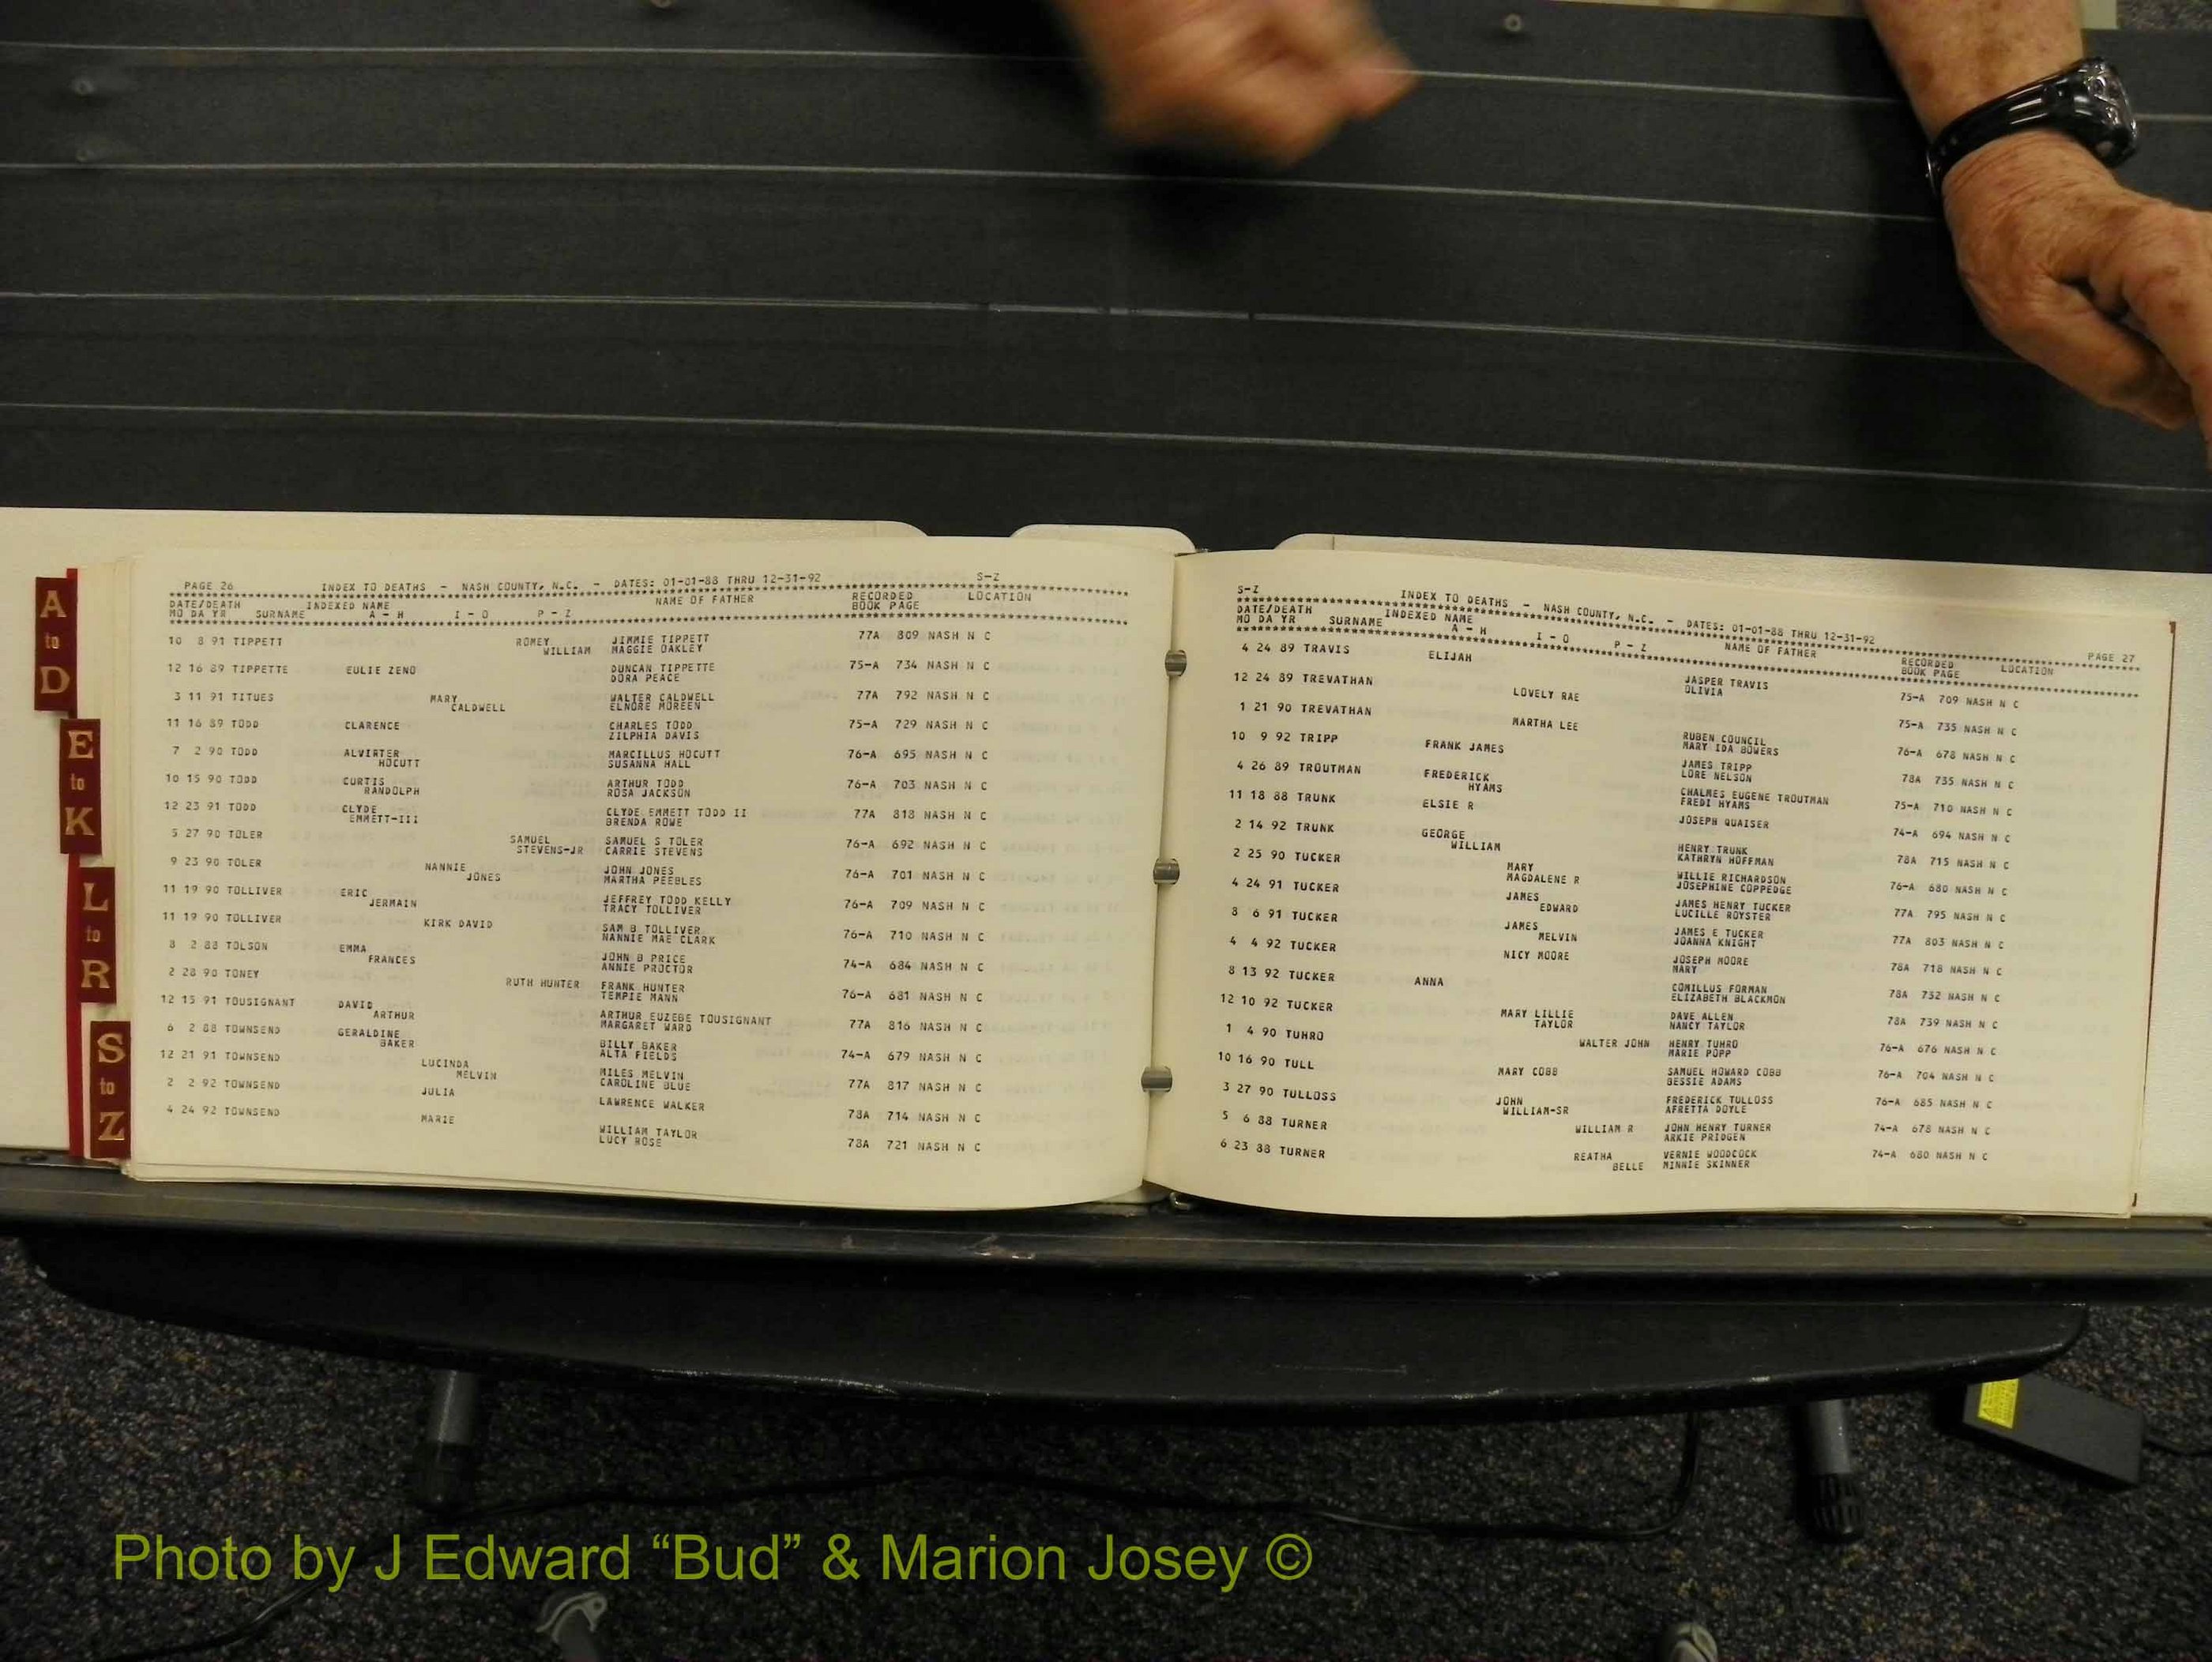 A
to
D
E
to
K
L
to
R
S
to
Z
PAGE 26 INDEX TO DEATHS - NASH COUNTY, N.C. - DATES: 01-01-88 THRU 12-31-92 S-Z
DATE/DEATH INDEXED NAME NAME OF FATHER RECORDED LOCATION
MO DA YR SURNAME A - H I - O P - Z BOOK PAGE
10 8 91 TIPPETT ROMEY JIMMIE TIPPETT 77A 809 NASH N C
WILLIAM MAGGIE OAKLEY
12 16 89 TIPPETTE EULIE ZENO DUNCAN TIPPETTE 75-A 734 NASH N C
DORA PEACE
3 11 91 TITUES MARY WALTER CALDWELL 77A 792 NASH N C
CALDWELL ELNORE MOREEN
11 16 89 TODD CLARENCE CHARLES TODD 75-A 729 NASH N C
ZILPHIA DAVIS
7 2 90 TODD ALVIRTER MARCILLUS HOCUTT 76-A 695 NASH N C
HOCUTT SUSANNA HALL
10 15 90 TODD CURTIS ARTHUR TODD 76-A 703 NASH N C
RANDOLPH ROSA JACKSON
12 23 91 TODD CLYDE CLYDE EMMETT TODD II 77A 818 NASH N C
EMMETT-III BRENDA ROWE
5 27 90 TOLER SAMUEL SAMUEL S TOLER 76-A 692 NASH N C
STEVENS-JR CARRIE STEVENS
9 23 90 TOLER NANNIE JOHN JONES 76-A 701 NASH N C
JONES MARTHA PEEBLES
11 19 90 TOLLIVER ERIC JEFFREY TODD KELLY 76-A 709 NASH N C
JERMAIN TRACY TOLLIVER
11 19 90 TOLLIVER KIRK DAVID SAM B TOLLIVER 76-A 710 NASH N C
NANNIE MAE CLARK
8 2 88 TOLSON EMMA JOHN B PRICE 74-A 684 NASH N C
FRANCES ANNIE PROCTOR
2 28 90 TONEY RUTH HUNTER FRANK HUNTER 76-A 681 NASH N C
TEMPIE MANN
12 15 91 TOUSIGNANT DAVID ARTHUR EUZEBE TOUSIGNANT 77A 816 NASH N C
ARTHUR MARGARET WARD
6 2 88 TOWNSEND GERALDINE BILLY BAKER 74-A 679 NASH N C
BAKER ALTA FIELDS
12 21 91 TOWNSEND LUCINDA MILES MELVIN 77A 817 NASH N C
MELVIN CAROLINE BLUE
2 2 92 TOWNSEND JULIA LAWRENCE WALKER 78A 714 NASH N C
4 24 92 TOWNSEND MARIE WILLIAM TAYLOR 78A 721 NASH N C
LUCY ROSE
S-Z INDEX TO DEATHS - NASH COUNTY, N.C. - DATES: 01-01-88 THRU 12-31-92 PAGE 27
DATE/DEATH INDEXED NAME NAME OF FATHER RECORDED LOCATION
MO DA YR SURNAME A - H I - O P - Z BOOK PAGE
4 24 89 TRAVIS ELIJAH JASPER TRAVIS 75-A 709 NASH N C
OLIVIA
12 24 89 TREVATHAN LOVELY RAE 75-A 735 NASH N C
1 21 90 TREVATHAN MARTHA LEE RUBEN COUNCIL 76-A 678 NASH N C
MARY IDA BOWERS
10 9 92 TRIPP FRANK JAMES JAMES TRIPP 78A 735 NASH N C
LORE NELSON
4 26 89 TROUTMAN FREDERICK CHALMES EUGENE TROUTMAN 75-A 710 NASH N C
HYAMS FREDI HYAMS
11 18 88 TRUNK ELSIE R JOSEPH QUAISER 74-A 694 NASH N C
2 14 92 TRUNK GEORGE HENRY TRUNK 78A 715 NASH N C
WILLIAM KATHRYN HOFFMAN
2 25 90 TUCKER MARY WILLIE RICHARDSON 76-A 680 NASH N C
MAGDALENE R JOSEPHINE COPPEDGE
4 24 91 TUCKER JAMES JAMES HENRY TUCKER 77A 795 NASH N C
EDWARD LUCILLE ROYSTER
8 6 91 TUCKER JAMES JAMES E TUCKER 77A 803 NASH N C
MELVIN JOANNA KNIGHT
4 4 92 TUCKER NICY MOORE JOSEPH MOORE 78A 718 NASH N C
MARY
8 13 92 TUCKER ANNA COMILLUS FORMAN 78A 732 NASH N C
ELIZABETH BLACKMON
12 10 92 TUCKER MARY LILLIE DAVE ALLEN 78A 739 NASH N C
TAYLOR NANCY TAYLOR
1 4 90 TUHRO WALTER JOHN HENRY TUHRO 76-A 676 NASH N C
MARIE POPP
10 16 90 TULL MARY COBB SAMUEL HOWARD COBB 76-A 704 NASH N C
BESSIE ADAMS
3 27 90 TULLOSS JOHN FREDERICK TULLOSS 76-A 685 NASH N C
WILLIAM-SR AFRETTA DOYLE
5 6 88 TURNER WILLIAM R JOHN HENRY TURNER 74-A 678 NASH N C
ARKIE PRIDGEN
6 23 88 TURNER REATHA VERNIE WOODCOCK 74-A 680 NASH N C
BELLE MINNIE SKINNER
Photo by J Edward “Bud” & Marion Josey ©